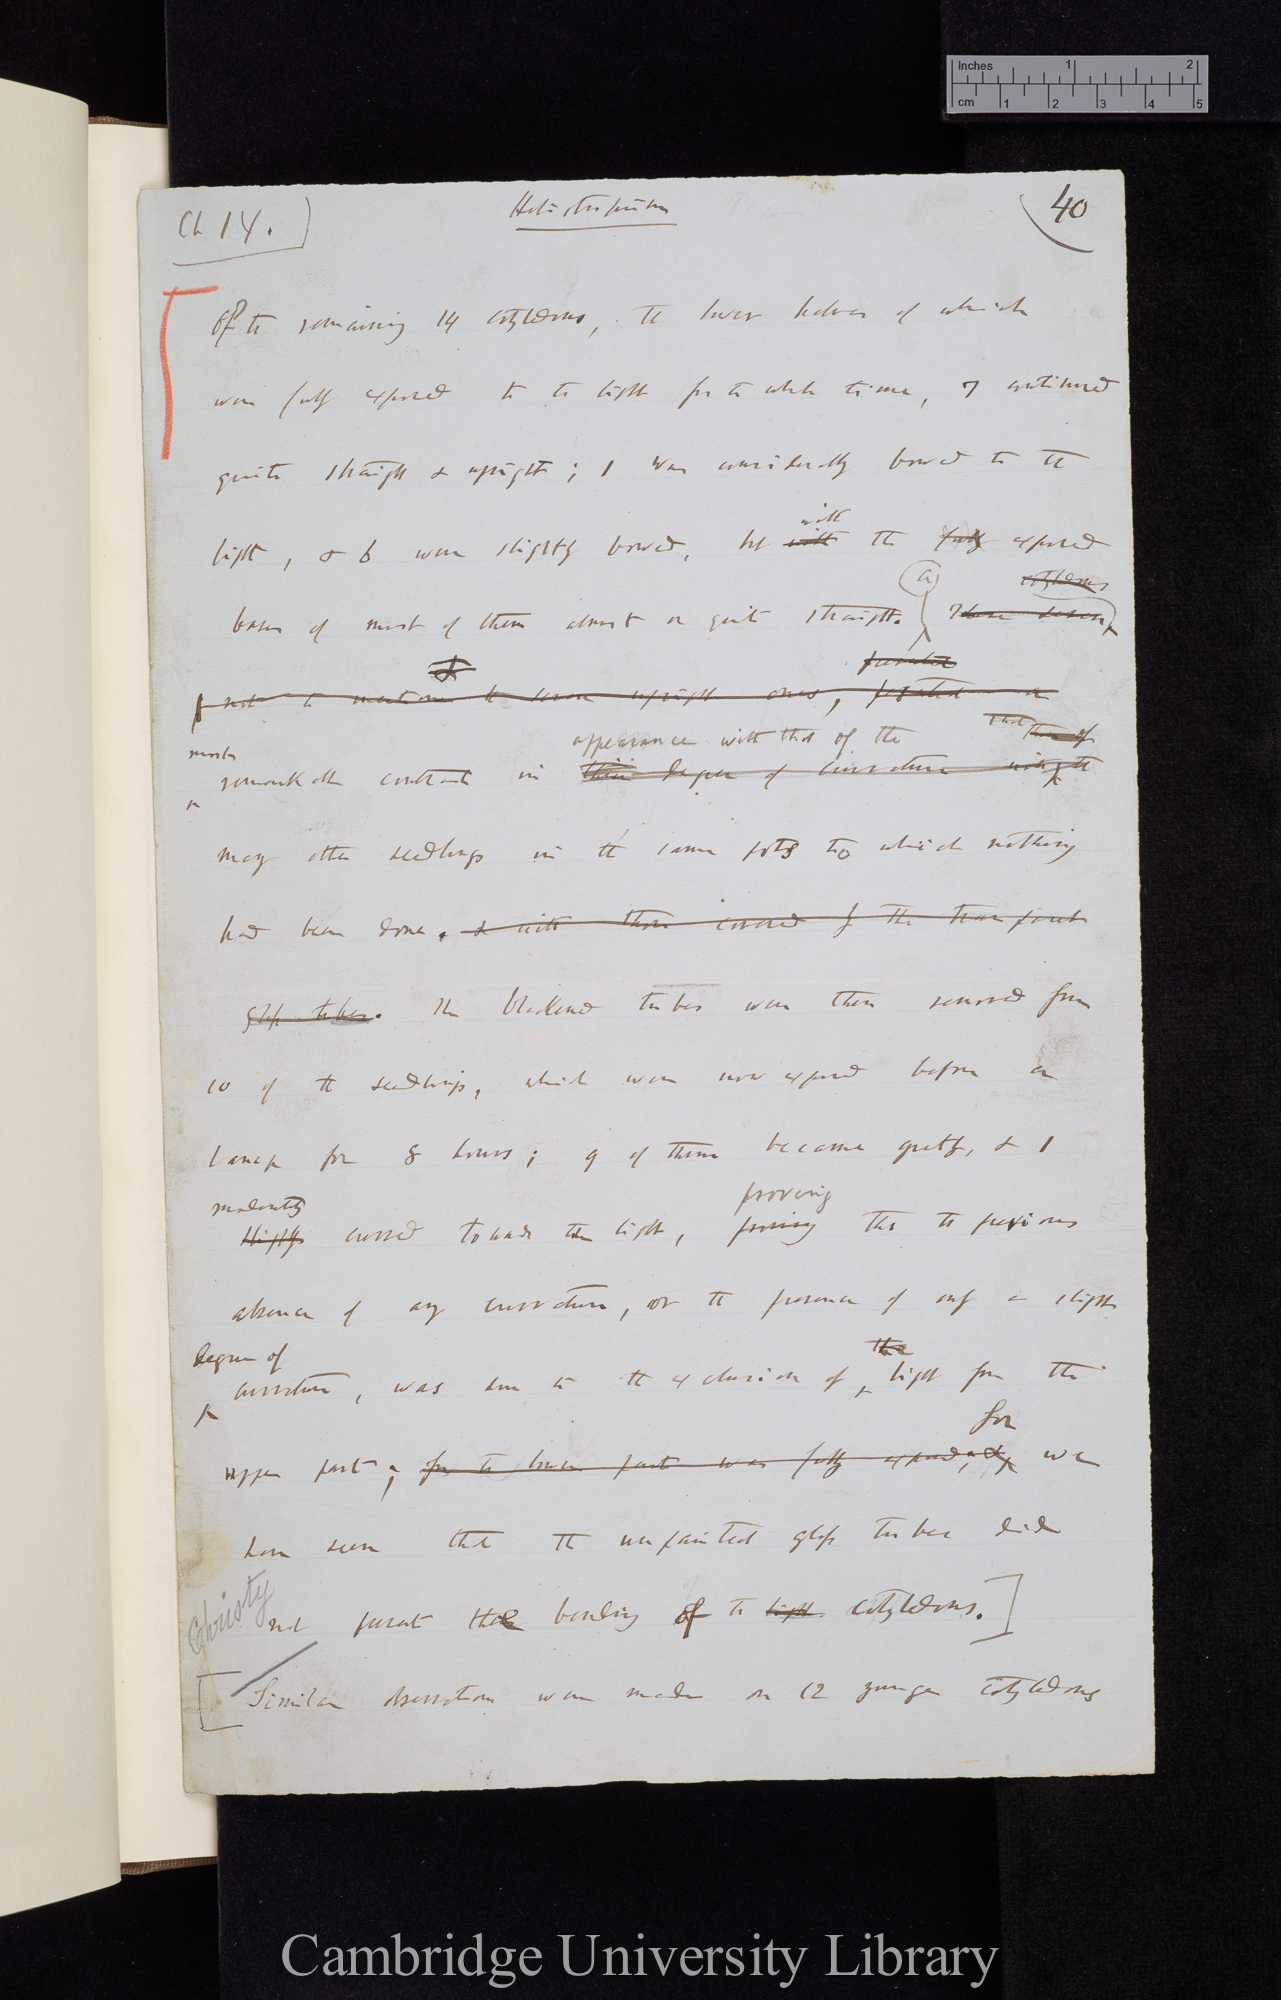 Inches 1 2
cm 1 2 3 4 5
Ch 14.
Heliotropism
40
Of the remaining 14 cotyledons, the lower halves of which
were fully exposed to the light for the whole time, 7 continued
quite straight & upright; 1 was considerably bowed to the
with
light, & 6 were slightly bowed, but with the fully exposed
(a) cotyledons
bases of most of them almost or quite straight. These seven
&
presented
not to mention the seven upright ones, presented a
most appearance with that of the that those of
remarkable contrast in their degree of curvature with the
many other seedlings in the same pots to which nothing
had been done. & with those covered by the transparent
glass tubes. The blackened tubes were then removed from
10 of the seedlings, which were now exposed before a
lamp for 8 hours; 9 of them became greatly, & 1
moderately proving
slightly curved towards the light, proving that the previous
absence of any curvature, or the presence of only a slight
degree of the
curvature, was due to the exclusion of light from the
for
upper part; for the lower part was fully exposed, & we
have seen that the unpainted glass tubes did
Christy
not prevent the bending of the light cotyledons.]
[Similar observations were made on 12 younger cotyledons
Cambridge University Library